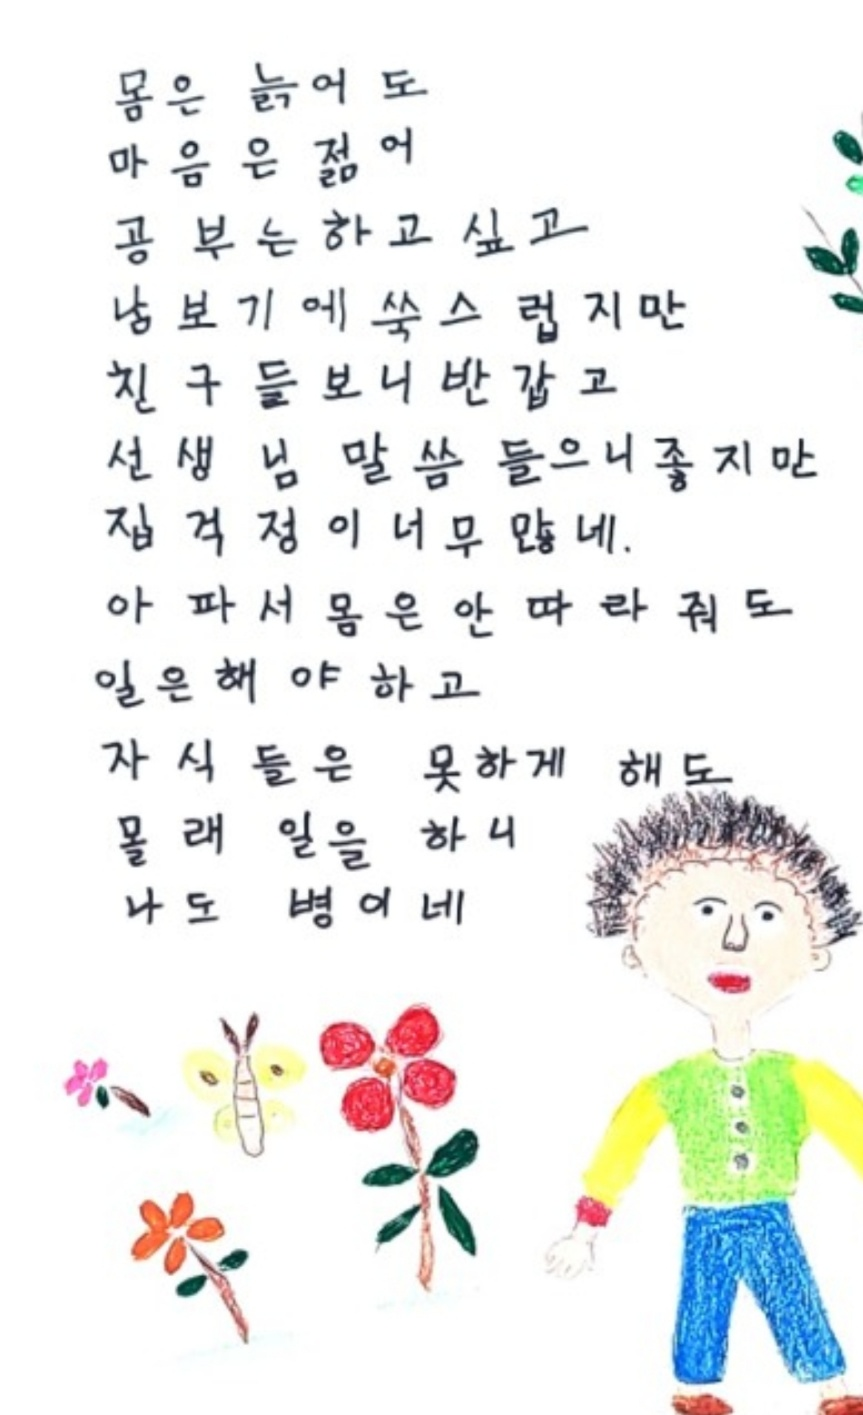 몸은 늙어도
마음은 젊어
공부는하고싶고
남보기에쑥스럽지만
친구들보니반갑고
선생님 말씀 들으니좋지만
집걱정이너무많네.
아파서몸은안따라줘도
일은해야하고
자식들은 못하게 해도
몰래 일을 하니
나도 병이네